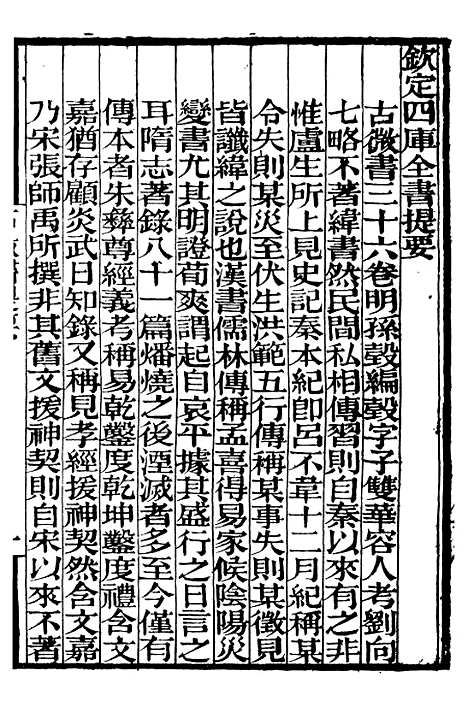 欽定四庫全書提要
古微書三十六卷明孫瑴編瑴字子雙華容人考劉向
七略不著緯書然民間私相傳習則自秦以來有之非
惟盧生所上見史記秦本紀卽呂不韋十二月紀稱某
令失則某災至伏生洪範五行傳稱某事失則某徵見
皆讖緯之說也漢書儒林傳稱孟喜得易家候陰陽災
變書尤其明證荀爽謂起自哀平據其盛行之日言之
耳隋志著錄八十一篇燔燒之後湮滅者多至今僅有
傳本者朱彝尊經義考稱易乾鑿度乾坤鑿度禮含文
嘉猶存顧炎武日知錄又稱見孝經援神契然含文嘉
乃宋張師禹所撰非其舊文援神契則自宋以來不著
一